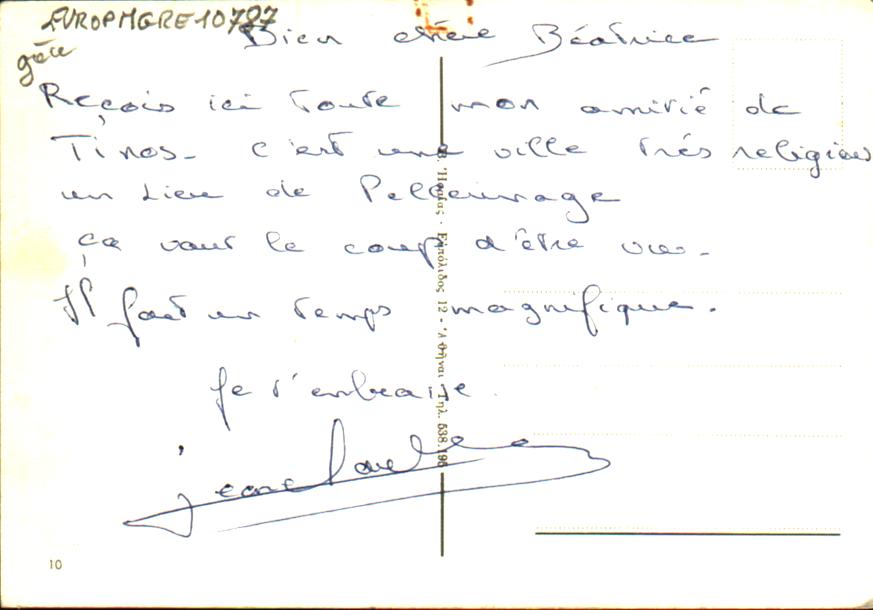 EUROPMGRE10787
gèce
Bien chère Béatrice
Reçois ici toute mon amitié de
Tinos. c'est une ville très religieuse
un Lieu de Pellerinage
ça vaut le coup d'être vu.
Il fait un temps magnifique.
Je t'embrasse
Jean
Εὐπόλιδος 12 - Ἀθῆναι Τηλ. 538.196
10